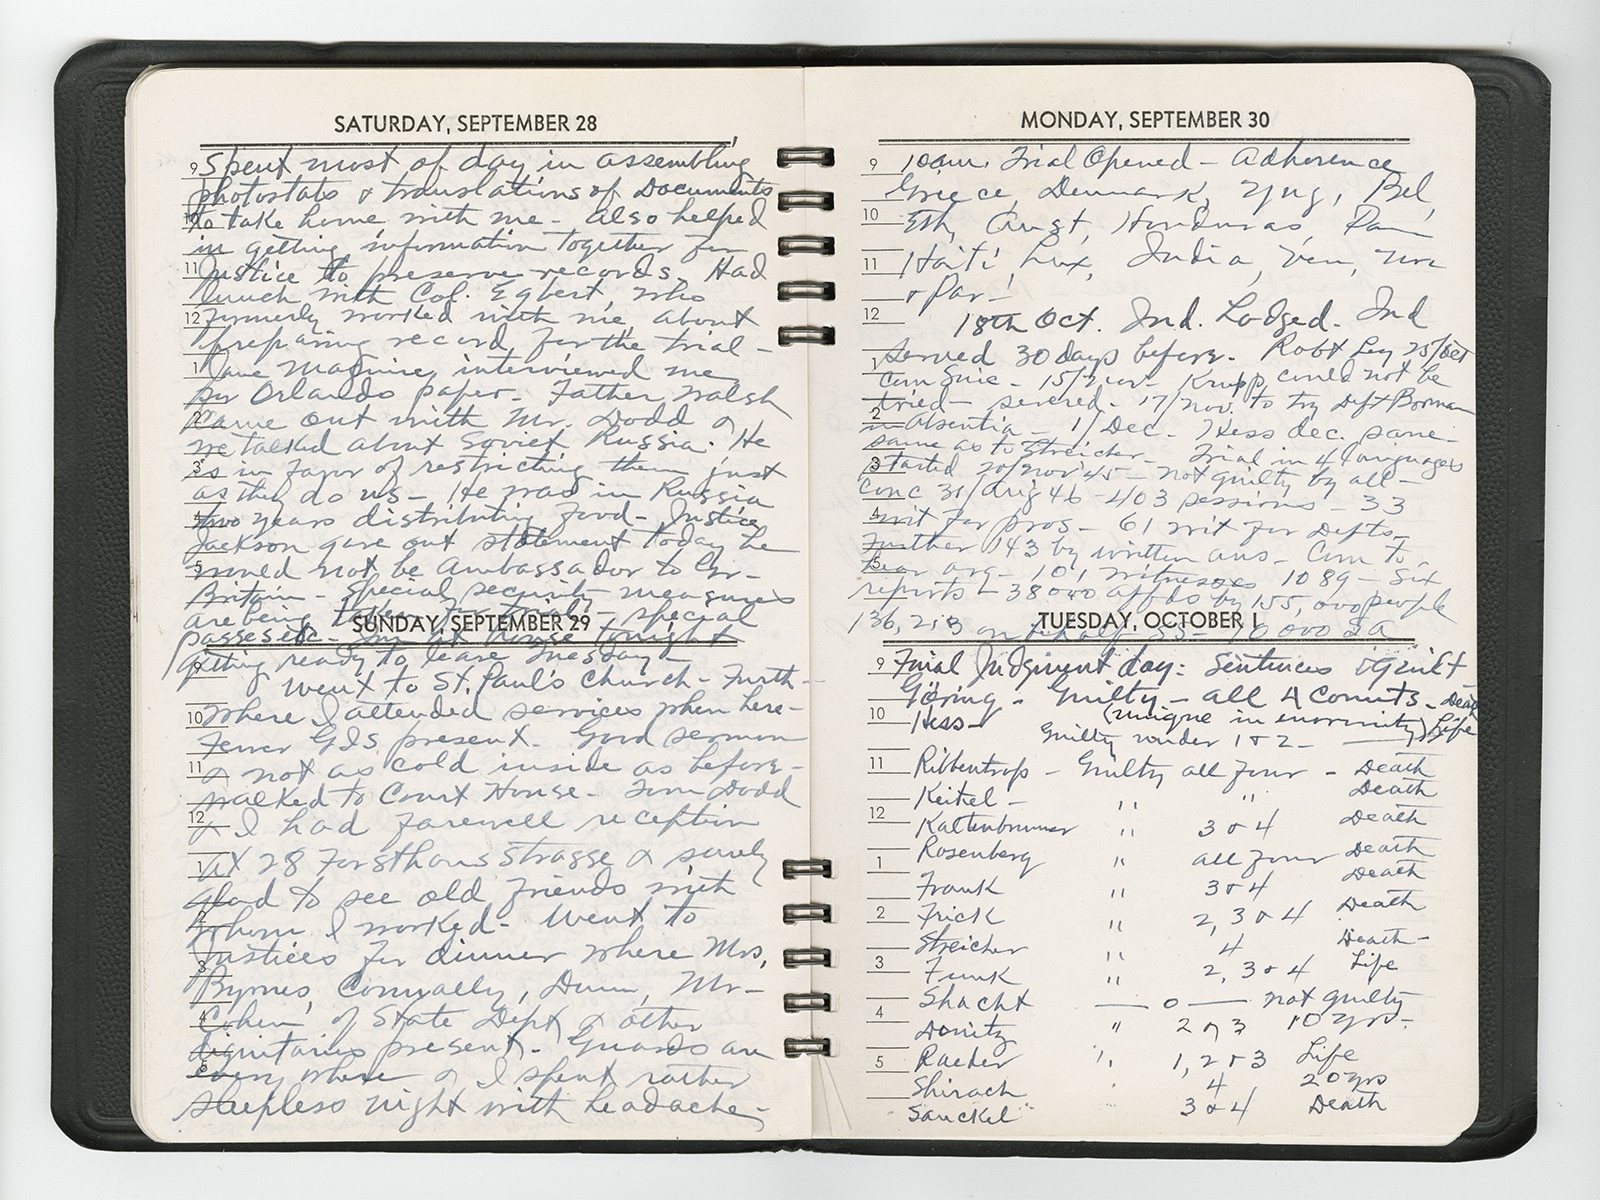 SATURDAY, SEPTEMBER 28
9 Spent most of day in assembling
photostats & translations of Documents
10 to take home with me - Also helped
in getting information together for
11 Justice to preserve records. Had
lunch with Col. Egbert, who
12 formerly worked with me about
preparing record for the trial -
1 Jane Maguire interviewed me
for Orlando paper. Father Walsh
2 came out with Mr. Dodd &
we talked about Soviet Russia. He
3 is in favor of restricting them just
as they do us - He was in Russia
4 two years distributing food - Justice
Jackson gave out statement today he
5 would not be Ambassador to Gr-
Britain - Special security measures
are being taken for trial - special
passes etc. I'm at house tonight
getting ready to leave Tuesday -
SUNDAY, SEPTEMBER 29
9 Went to St. Paul's Church - Furth -
10 where I attended services when here -
Fewer GIs present. Good sermon
11 & not as cold inside as before -
walked to Court House - Tom Dodd
12 & I had farewell reception
1 at 28 Forsthausstrasse & surely
glad to see old friends with
2 whom I worked - Went to
3 Justices for dinner where Mrs,
Byrnes, Connally, Dunn, Mr -
4 Cohen of State Dept & other
dignitaries present. Guards are
5 every where & I spent rather
sleepless night with headache -
MONDAY, SEPTEMBER 30
9 10 am. Trial Opened - Adherence
Greece, Denmark, Yug, Bel,
10 Eth, Aust, Honduras, Pan
11 Haiti, Lux, India, Ven, Uru
& Par -
12 18th Oct. Ind. Lodged. Ind
1 served 30 days before. Robt Ley 25/Oct
com suic - 15/Nov - Krupp could not be
2 tried - severed. 17/Nov. to try Dft Borman
in absentia - 1/Dec. Hess dec. sane -
same as to Streicher - Trial in 4 languages
3 started 20/Nov 45 - not guilty by all -
Conc 31/Aug 46 - 403 sessions - 33
4 wit for pros - 61 wit for Defts -
Further 143 by written ans - Com to
5 hear org - 101 witnesses 1089 - six
reports - 38000 affds by 155,000 people
136,213 on behalf SS - 10 000 SA
TUESDAY, OCTOBER 1
9 Final Judgment day: Sentences & guilt
Göring - Guilty - all 4 Counts - Death
10 Hess - (unique in enormity) Life
Guilty under 1 & 2 -
11 Ribbentrop - Guilty all four - Death
Keitel - " " Death
12 Kaltenbrunner " 3 & 4 Death
Rosenberg " all four Death
1 Frank " 3 & 4 Death
2 Frick " 2, 3 & 4 Death
Streicher " 4 Death -
3 Funk " 2, 3 & 4 Life
4 Shacht - o - not guilty
Donitz " 2 & 3 10 yrs.
5 Raeder " 1, 2 & 3 Life
Shirach " 4 20 yrs
Sauckel " 3 & 4 Death